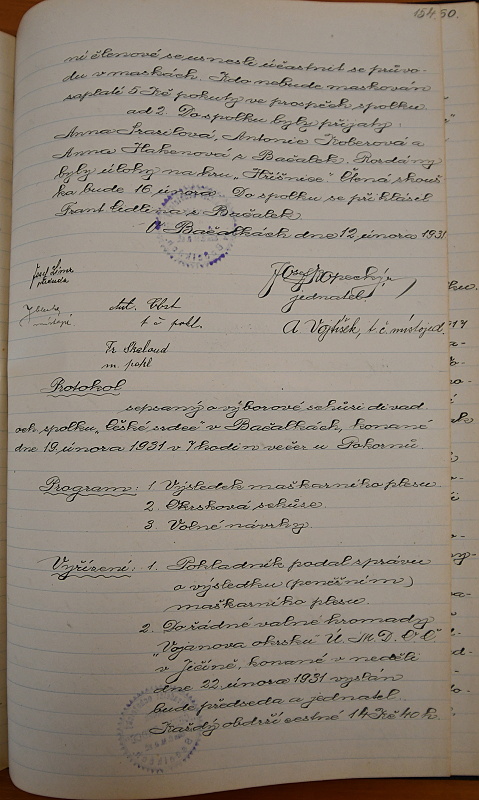 154. 50.
ní členové se usnesli účastnit se průvo-
du v maskách. Kdo nebude maskován
zaplatí 5 Kč pokuty ve prospěch spolku.
ad 2. Do spolku byly přijaty:
Anna Antonie Koberová a
Anna z Bačalek. Rozdány
byly úlohy na hru „Hříšnice". Čtená zkouš
ka bude 16 února. Do spolku se přihlásil
Frant. z Bačalek
V Bačalkách dne 12, února 1931
Josef
předseda
Josef Kopecký
jednatel
Ant.
t č. pokl.
A Vojtíšek, t č. místojed.
Fr Skaloud
m. pokl
Protokol
sepsaný o výborové schůzi divad.
och. spolku „České srdce" v Bačalkách, konané
dne 19, února 1931 v 7 hodin večer u Pokornů.
Program: 1 Výsledek maškarního plesu.
2. Okrsková schůze.
3. Volné návrhy.
Vyřízení: 1. Pokladník podal správu
o výsledku (peněžním)
maškarního plesu.
2. Do řádné valné hromady
„Vojanova okrsku Ú. M. D. O. Č.
v Jičíně, konané v neděli
dne 22, února 1931 vyslán
bude předseda a jednatel.
Každý obdrží cestné 14 Kč 40 h.